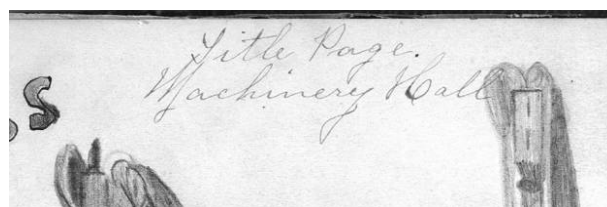 Title Page.
Machinery Hall
S